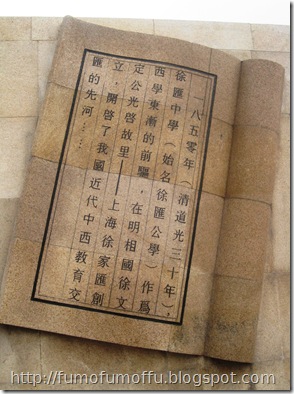 一八五零年（清道光三十年），
徐匯中學（始名徐匯公學）作爲
西學東漸的前驅，在明相國徐文
定公光啓故里——上海徐家匯創
立，開啓了我國近代中西教育交
匯的先河……
http://fumofumoffu.blogspot.com